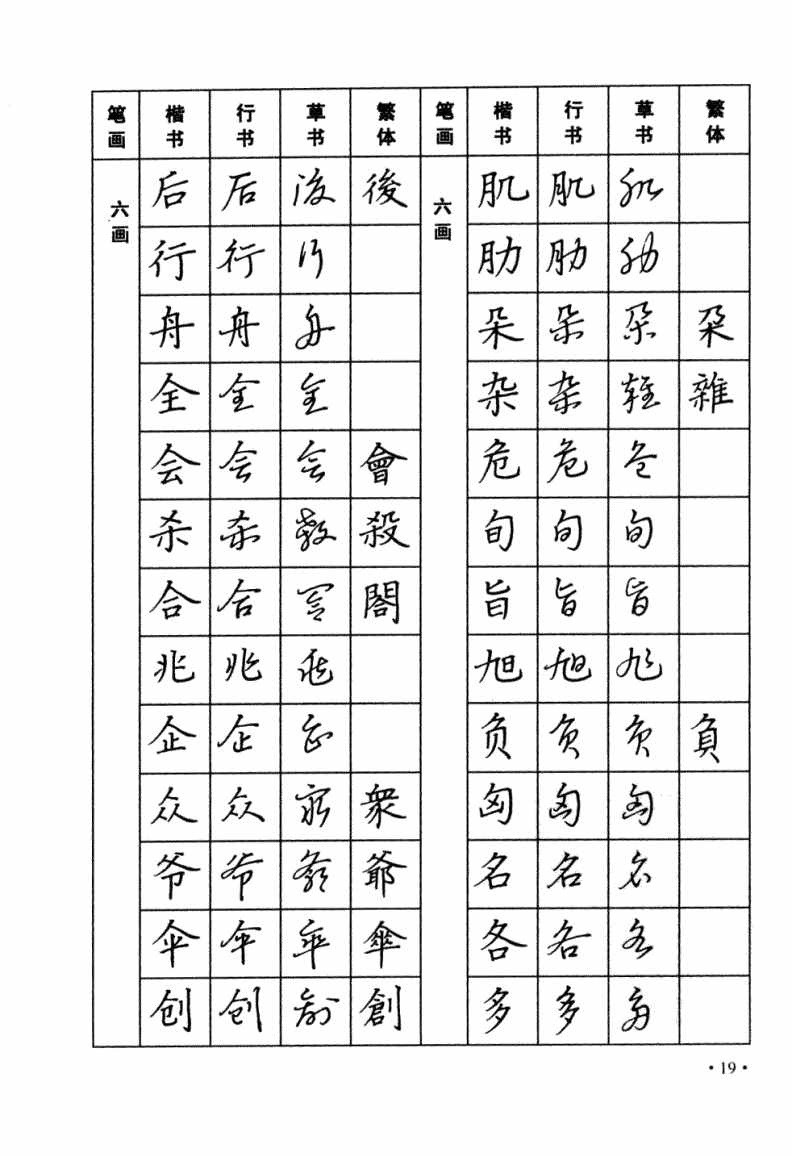 笔画 楷书 行书 草书 繁体 笔画 楷书 行书 草书 繁体
六画 后 后 后 後 六画 肌 肌 肌
行 行 行 肋 肋 肋
舟 舟 舟 朵 朵 朵 朶
全 全 全 杂 杂 杂 雜
会 会 会 會 危 危 危
杀 杀 杀 殺 旬 旬 旬
合 合 合 閤 旨 旨 旨
兆 兆 兆 旭 旭 旭
企 企 企 负 负 负 負
众 众 众 衆 匈 匈 匈
爷 爷 爷 爺 名 名 名
伞 伞 伞 傘 各 各 各
创 创 创 創 多 多 多
·19·